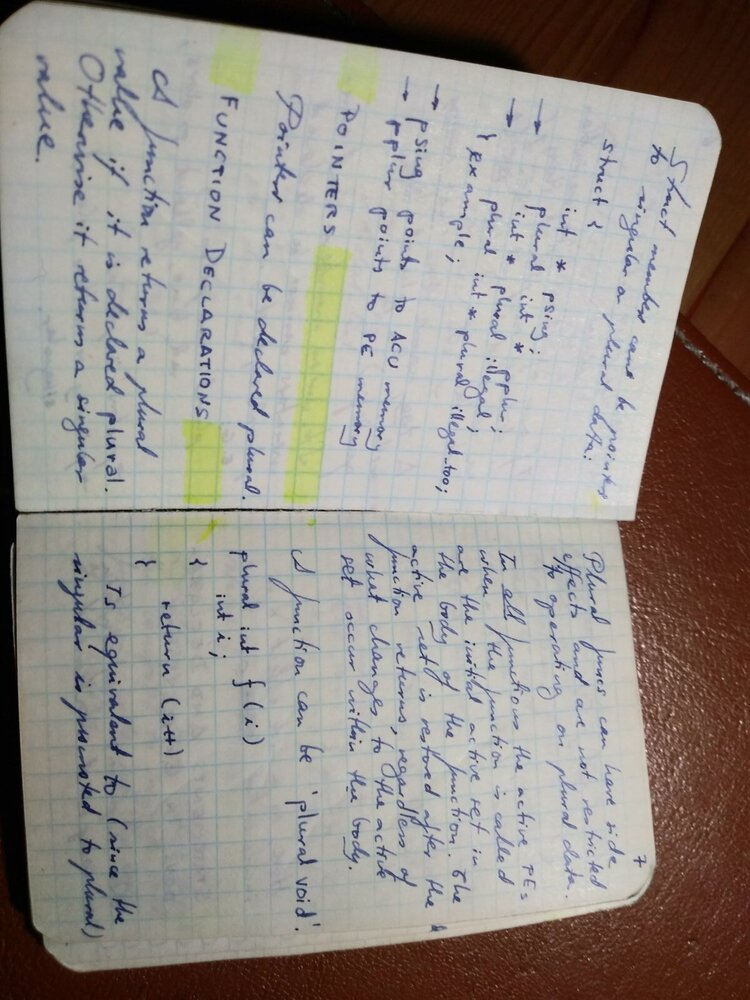 Struct member can be pointer
to singular or plural data:
struct {
→ int * psing;
→ plural int * pplu;
int * plural illegal;
plural int * plural illegal-too;
} example;
→ psing points to ACU memory
→ pplu points to PE memory
POINTERS
Pointer can be declared plural.
FUNCTION DECLARATIONS
A function returns a plural
value if it is declared plural.
Otherwise it returns a singular
value.
7
Plural funcs can have side
effects and are not restricted
to operating on plural data.
In all functions the active PEs
when the function is called
are the initial active set in
the body of the function. The
active set is restored after the
function returns, regardless of
what changes to the active
set occur within the body.
A function can be 'plural void'.
plural int f(i)
int i;
{
return (i++)
}
Is equivalent to (since the
singular is promoted to plural)